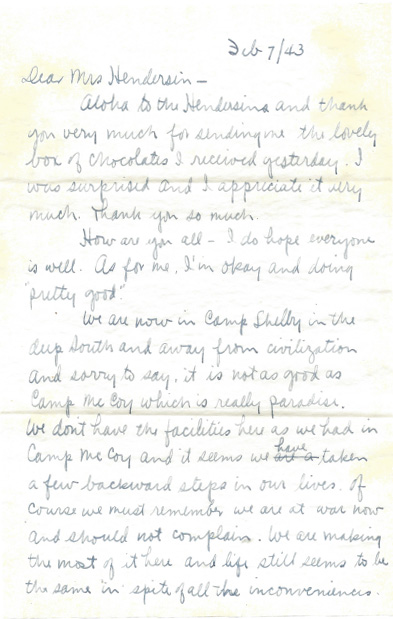 Feb 7/43
Dear Mrs Hendersin –
Aloha to the Hendersins and thank
you very much for sending me the lovely
box of chocolates I received yesterday. I
was surprised and I appriciate it very
much. Thank you so much.
How are you all – I do hope everyone
is well. As for me, I'm okay and doing
"pretty good".
We are now in Camp Shelby in the
deep South and away from civilization
and sorry to say, it is not as good as
Camp Mc Coy which is really paradise.
We don't have the facilities here as we had in
Camp Mc Coy and it seems we have taken
a few backward steps in our lives. Of
course we must remember we are at war now
and should not complain. We are making
the most of it here and life still seems to be
the same in spite of all the inconveniences.